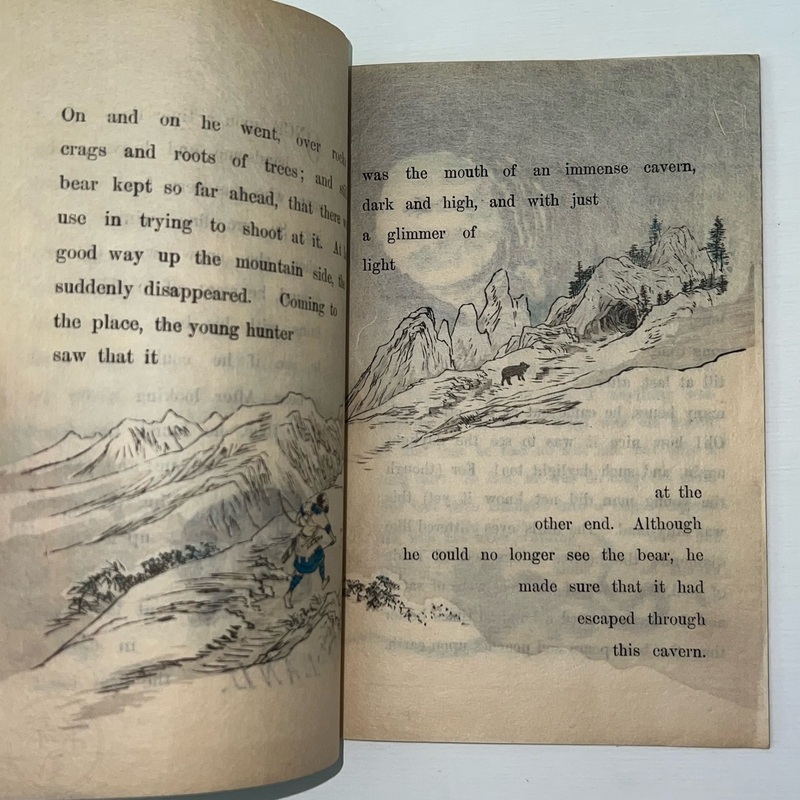 On and on he went, over
crags and roots of trees; and
bear kept so far ahead, that there
use in trying to shoot at it. At
good way up the mountain side,
suddenly disappeared. Coming to
the place, the young hunter
saw that it
was the mouth of an immense cavern,
dark and high, and with just
a glimmer of
light
at the
other end. Although
he could no longer see the bear, he
made sure that it had
escaped through
this cavern.